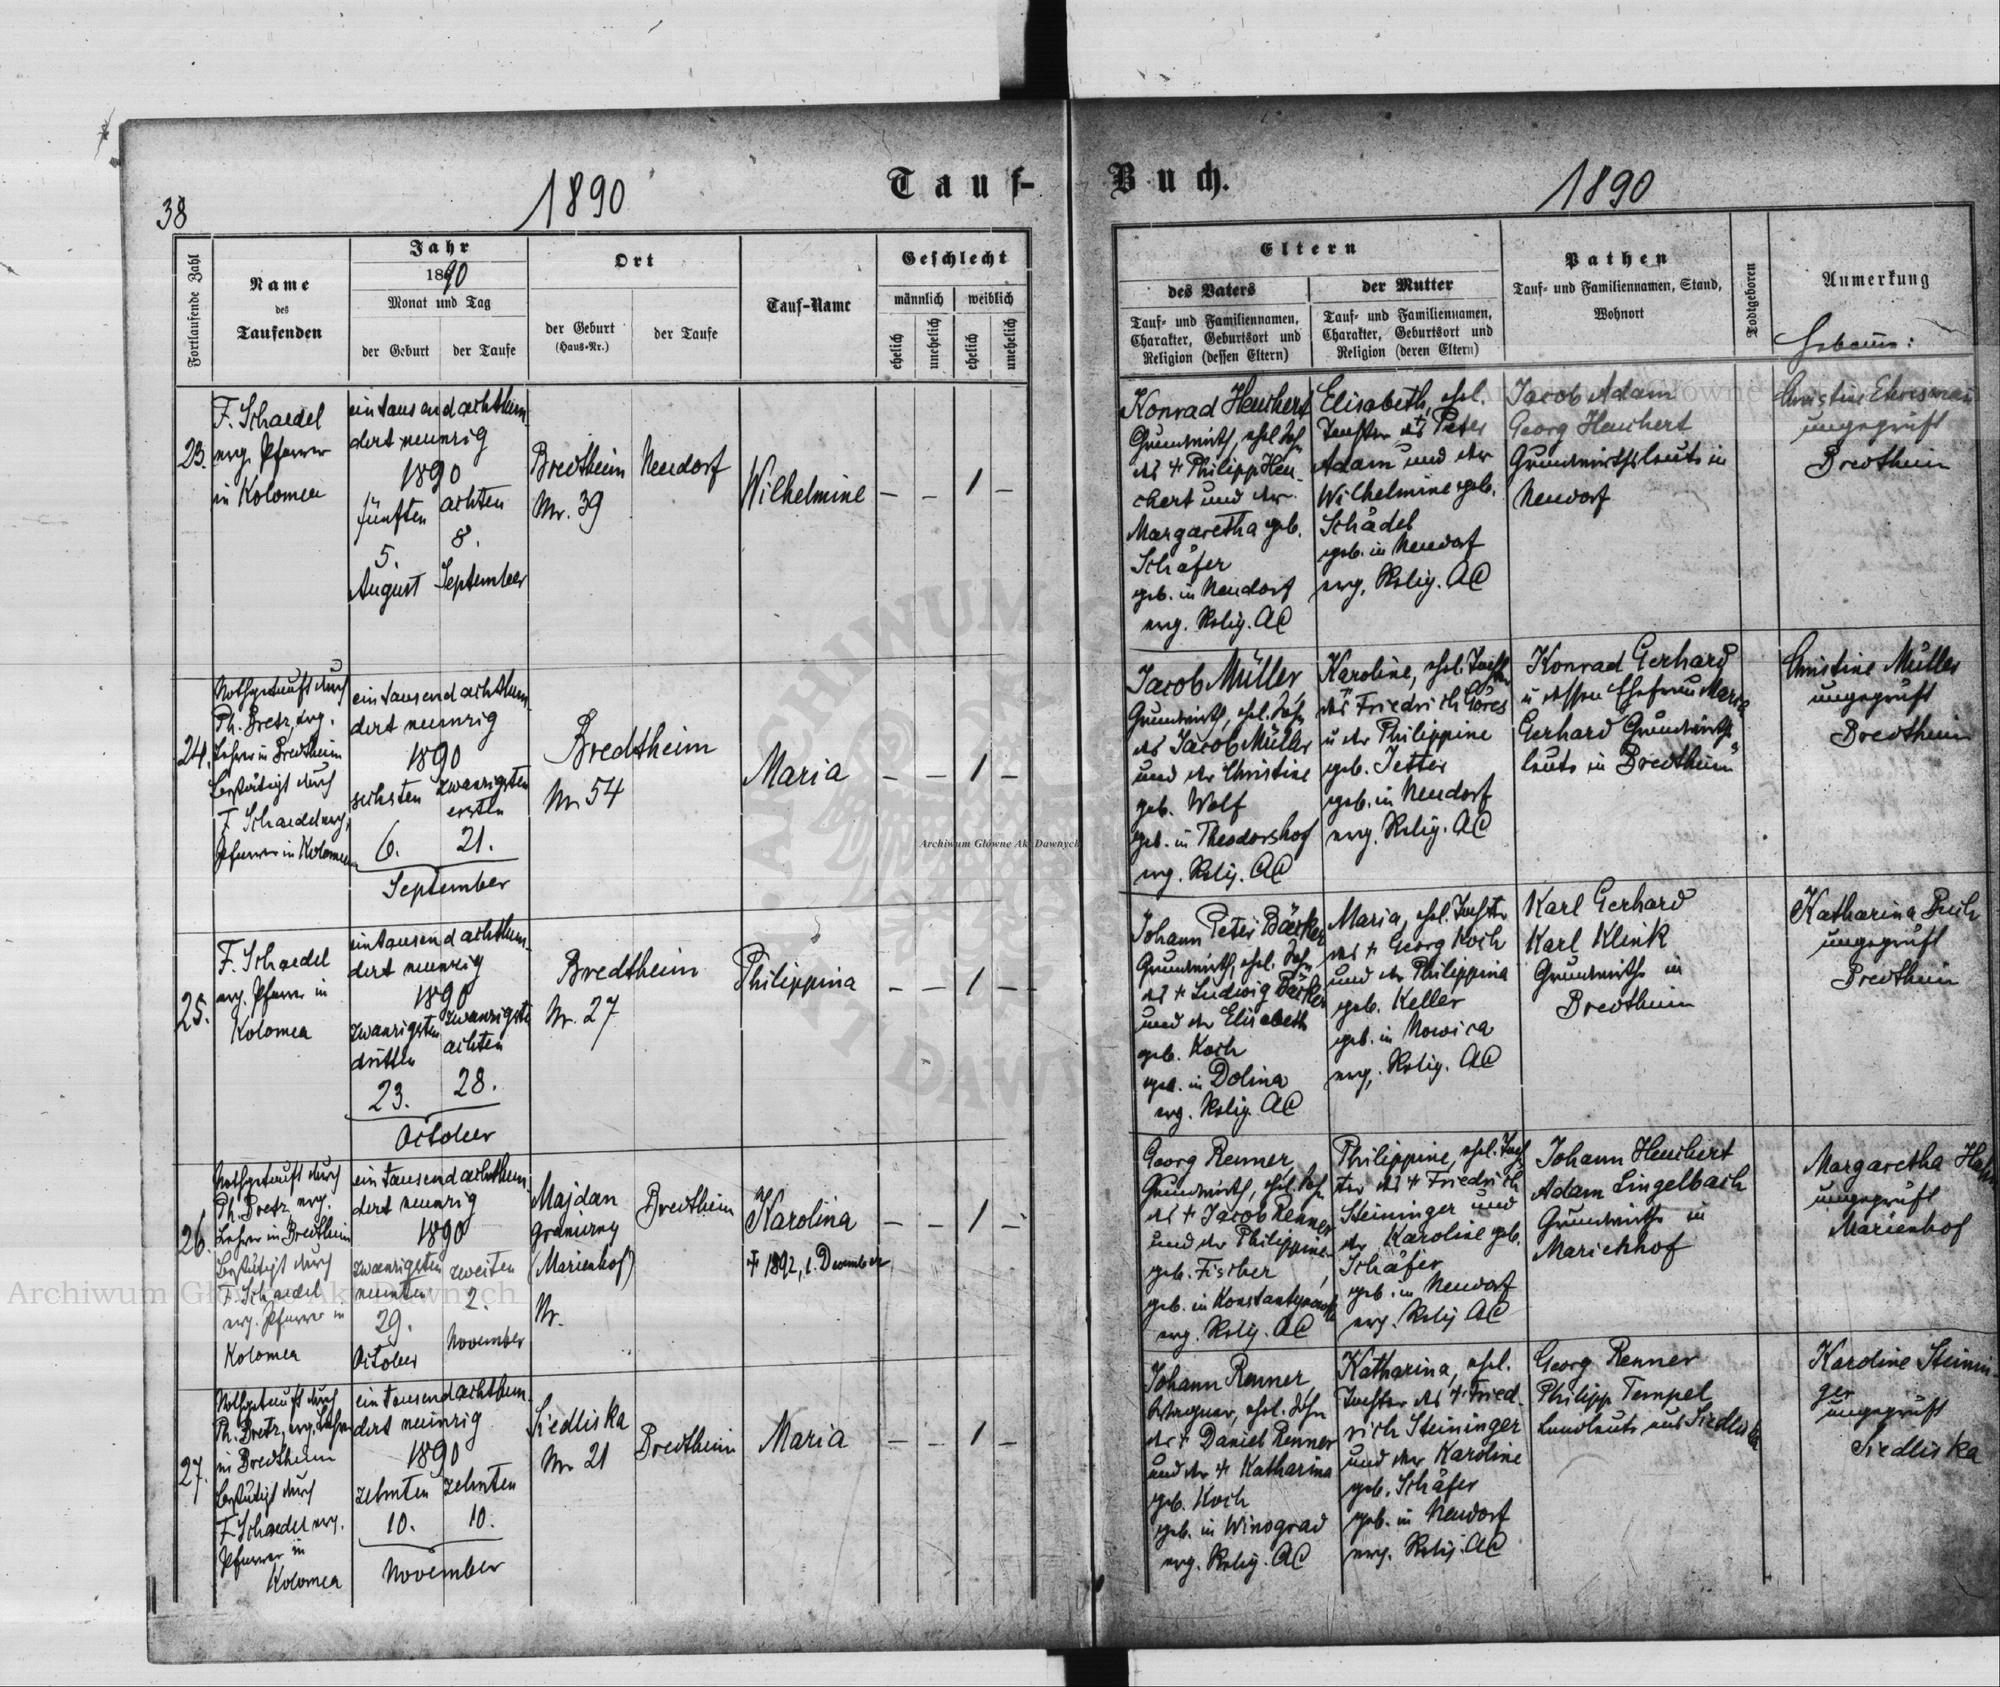 38
1890
Tauf-
Buch.
1890
Fortlaufende Zahl
Name
des
Taufenden
Jahr
1890
Monat und Tag
der Geburt
der Taufe
Ort
der Geburt
(Haus-Nr.)
der Taufe
Tauf-Name
Geschlecht
männlich
weiblich
ehelich
unehelich
ehelich
unehelich
Eltern
des Vaters
Tauf- und Familiennamen,
Charakter, Geburtsort und
Religion (dessen Eltern)
der Mutter
Tauf- und Familiennamen,
Charakter, Geburtsort und
Religion (deren Eltern)
Pathen
Tauf- und Familiennamen, Stand,
Wohnort
Todtgeboren
Anmerkung
Hebamme:
23.
F. Schaedel
evg. Pfarrer
in Kolomea
eintausendachthun-
dert neunzig
1890
fünften
5.
August
achten
8.
September
Bredtheim
Nr. 39
Neudorf
Wilhelmine
– – 1 –
Konrad Heuchert
Grundwirth, ehel. Sohn
des + Philipp Heu-
chert und der
Margaretha geb.
Schäfer
geb. in Neudorf
evg. Relig. AC
Elisabeth, ehel.
Tochter des Peter
Adam und der
Wilhelmine geb.
Schädel
geb. in Neudorf
evg. Relig. AC
Jacob Adam
Georg Heuchert
Grundwirthsleute in
Neudorf
Christine
ungeprüft
Bredtheim
24.
Nothgetauft durch
Ph. Bretz, evg.
Lehrer in Bredtheim
bestätigt durch
F. Schaedel evg.
Pfarrer in Kolomea
eintausendachthun-
dert neunzig
1890
sechsten
6.
zwanzigsten
ersten
21.
September
Bredtheim
Nr. 54
Maria
– – 1 –
Jacob Müller
Grundwirth, ehel. Sohn
des Jacob Müller
und der Christine
geb. Wolf
geb. in Theodorshof
evg. Relig. AC
Karoline, ehel. Tochter
des Friedrich Göres
u der Philippine
geb. Jetter
geb. in Neudorf
evg. Relig. AC
Konrad Gerhard
u dessen Ehefrau Maria
Gerhard Grundwirths-
leute in Bredtheim
Christine Müller
ungeprüft
Bredtheim
25.
F. Schaedel
evg. Pfarrer in
Kolomea
eintausendachthun-
dert neunzig
1890
zwanzigsten
dritten
23.
zwanzigsten
achten
28.
October
Bredtheim
Nr. 27
Philippina
– – 1 –
Johann Peter Bäcker
Grundwirth, ehel. Sohn
des + Ludwig Bäcker
und der Elisabeth
geb. Koch
geb. in Dolina
evg. Relig. AC
Maria, ehel. Tochter
des + Georg Koch
und der Philippina
geb. Keller
geb. in Nowica
evg. Relig. AC
Karl Gerhard
Karl Klink
Grundwirthe in
Bredtheim
Katharina
ungeprüft
Bredtheim
26.
Nothgetauft durch
Ph. Bretz, evg.
Lehrer in Bredtheim
bestätigt durch
F. Schaedel
evg. Pfarrer in
Kolomea
eintausendachthun-
dert neunzig
1890
zwanzigsten
neunten
29.
October
zweiten
2.
November
Majdan
graniczny
(Marienhof)
Nr.
Bredtheim
Karolina
+ 1892, 1. December
– – 1 –
Georg Renner
Grundwirth, ehel. Sohn
des + Jacob Renner
und der Philippine
geb. Fischer
geb. in
evg. Relig. AC
Philippine, ehel. Toch-
ter des + Friedrich
Steininger und
der Karoline geb.
Schäfer
geb. in Neudorf
evg. Relig AC
Johann Heuchert
Adam Lingelbach
Grundwirthe in
Marienhof
Margaretha
ungeprüft
Marienhof
27.
Nothgetauft durch
Ph. Bretz, evg. Lehrer
in Bredtheim
bestätigt durch
F. Schaedel evg.
Pfarrer in
Kolomea
eintausendachthun-
dert neunzig
1890
zehnten
10.
zehnten
10.
November
Siedliska
Nr 21
Bredtheim
Maria
– – 1 –
Johann Renner
Wagner, ehel. Sohn
des + Daniel Renner
und der + Katharina
geb. Koch
geb. in Winograd
evg. Relig. AC
Katharina, ehel.
Tochter des + Fried-
rich Steininger
und der Karoline
geb. Schäfer
geb. in Neudorf
evg. Relig. AC
Georg Renner
Philipp Tempel
Landleute aus Siedliska
Karoline Steinin-
ger
ungeprüft
Siedliska
Archiwum Główne Akt Dawnych
Archiwum Główne Akt Dawnych